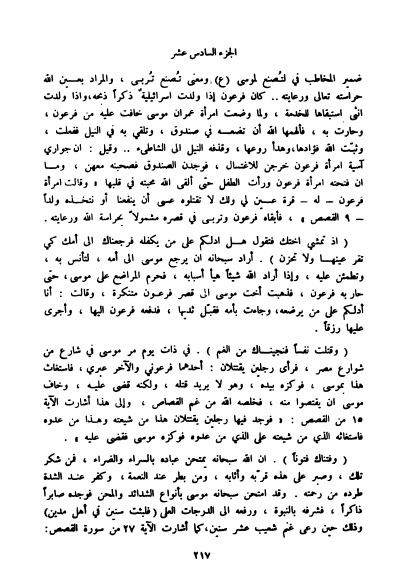 الجزء السادس عشر
ضمير المخاطب في لتصنع لموسى (ع) ومعنى تُصنع تُربى ، والمراد بعين الله
حراسته تعالى ورعايته .. كان فرعون إذا ولدت اسرائيلية ذكراً ذبحه، واذا ولدت
انثى استبقاها للخدمة ، ولما وضعت امرأة عمران موسى خافت عليه من فرعون ،
وحارت به ، فألهمها الله أن تضعه في صندوق ، وتلقي به في النيل ففعلت ،
وثبّت الله فؤادها، وهدأ روعها ، وقذفه النيل الى الشاطىء .. وقيل : ان جواري
آسية امرأة فرعون خرجن للاغتسال ، فوجدن الصندوق فصحبنه معهن ، وما
ان فتحته امرأة فرعون ورأت الطفل حتى ألقى الله محبته في قلبها « وقالت امرأة
فرعون — له — قرة عين لي ولك لا تقتلوه عسى أن ينفعنا أو نتخذه ولداً
— ٩ القصص » ، فأبقاه فرعون وتربى في قصره مشمولاً بحراسة الله ورعايته .
( اذ تمشي اختك فتقول هل ادلكم على من يكفله فرجعناك الى أمك كي
تقر عينها ولا تحزن ) . أراد سبحانه ان يرجع موسى الى أمه ، لتأنس به ،
وتطمئن عليه ، وإذا أراد الله شيئاً هيأ أسبابه ، فحرم المراضع على موسى، حتى
حار به فرعون ، فذهبت أخت موسى الى قصر فرعون متنكرة ، وقالت : أنا
أدلكم على من يرضعه، وجاءت بأمه فقبّل ثديها ، فدفعه فرعون اليها ، وأجرى
عليها رزقاً .
( وقتلت نفساً فنجيناك من الغم ) . في ذات يوم مر موسى في شارع من
شوارع مصر ، فرأى رجلين يقتتلان : أحدهما فرعوني والآخر عبري ، فاستغاث
هذا بموسى ، فوكزه بيده ، وهو لا يريد قتله ، ولكنه قضى عليه ، وخاف
موسى ان يقتصوا منه ، فخلصه الله من غم القصاص ، وإلى هذا أشارت الآية
١٥ من القصص : « فوجد فيها رجلين يقتتلان هذا من شيعته وهذا من عدوه
فاستغاثه الذي من شيعته على الذي من عدوه فوكزه موسى فقضى عليه » .
( وفتناك فتوناً ) . ان الله سبحانه يمتحن عباده بالسراء والضراء ، فمن شكر
تلك ، وصبر على هذه قرّبه وأثابه ، ومن بطر عند النعمة ، وكفر عند الشدة
طرده من رحمته . وقد امتحن سبحانه موسى بأنواع الشدائد والمحن فوجده صابراً
ذاكراً ، فشرفه بالنبوة ، ورفعه الى الدرجات العلى ( فلبثت سنين في أهل مدين )
وذلك حين رعى غنم شعيب عشر سنين، كما أشارت الآية ٢٧ من سورة القصص:
٢١٧